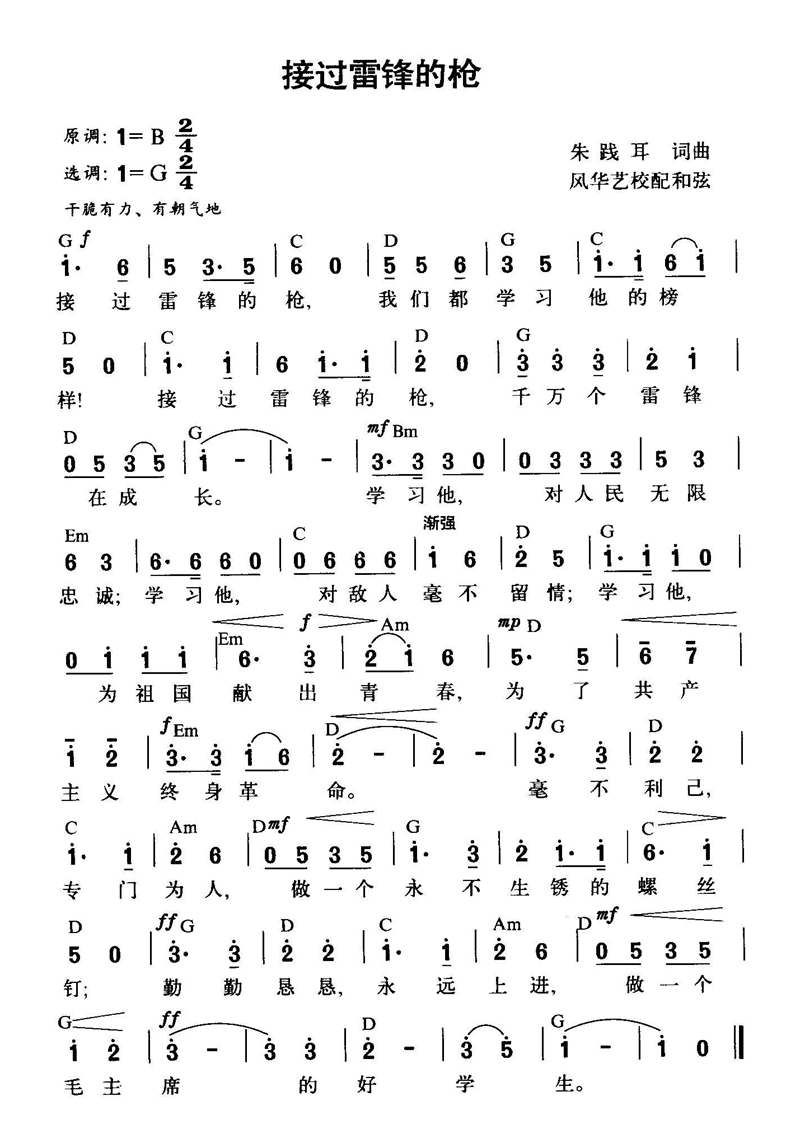 接过雷锋的枪
原调: 1=B 2/4
朱践耳 词曲
选调: 1=G 2/4
风华艺校配和弦
干脆有力、有朝气地
G f C D G C
1· 6 | 5 3· 5 | 6 0 | 5 5 6 | 3 5 | 1· 1 6 1 |
接 过 雷 锋 的 枪, 我 们 都 学 习 他 的 榜
D C D G
5 0 | 1· 1 | 6 1· 1 | 2 0 | 3 3 3 | 2 1 |
样! 接 过 雷 锋 的 枪, 千 万 个 雷 锋
D G mf Bm
0 5 3 5 | 1 - | 1 - | 3· 3 3 0 | 0 3 3 3 | 5 3 |
在 成 长。 学 习 他, 对 人 民 无 限
Em C 渐强 D G
6 3 | 6· 6 6 0 | 0 6 6 6 | 1 6 | 2 5 | 1· 1 1 0 |
忠 诚; 学 习 他, 对 敌 人 毫 不 留 情; 学 习 他,
Em f Am mp D
0 1 1 1 | 6· 3 | 2 1 6 | 5· 5 | 6 7 |
为 祖 国 献 出 青 春, 为 了 共 产
f Em D ff G D
1 2 | 3· 3 1 6 | 2 - | 2 - | 3· 3 | 2 2 |
主 义 终 身 革 命。 毫 不 利 己,
C Am D mf G C
1· 1 | 2 6 | 0 5 3 5 | 1· 3 | 2 1· 1 | 6· 1 |
专 门 为 人, 做 一 个 永 不 生 锈 的 螺 丝
D ff G D C Am D mf
5 0 | 3· 3 | 2 2 | 1· 1 | 2 6 | 0 5 3 5 |
钉; 勤 勤 恳 恳, 永 远 上 进, 做 一 个
G ff D G
1 2 | 3 - | 3 3 | 2 - | 3 5 | 1 - | 1 0 ‖
毛 主 席 的 好 学 生。